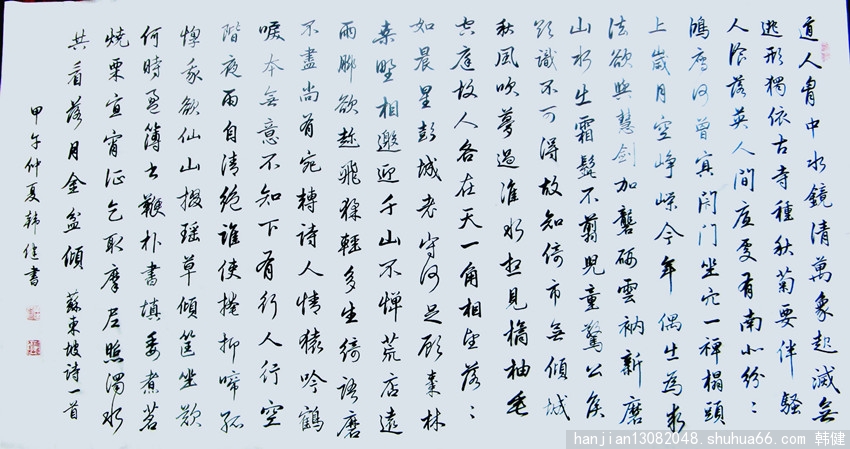 道人胷中水鏡清萬象起滅無
逃形獨依古寺種秋菊要伴騷
人飡落英人間底處有南北紛〻
鴻雁何曾冥閉門坐穴一禪榻頭
上歲月空崢嶸今年偶生為求
法欲與慧劍加礱硎雲衲新磨
山水生霜髭不翦兒童驚公侯
欲識不可得故知倚市無傾城
秋風吹夢過淮水想見橘柚垂
空庭故人各在天一角相望落〻
如晨星彭城老守何足顧棗林
桑野相邀迎千山不憚荒店遠
兩腳欲趁飛猱輕多生綺語磨
不盡尚有宛轉詩人情猿吟鶴
唳本無意不知下有行人行空
階夜雨自清絕誰使掩抑啼孤
惸我欲仙山掇瑤草傾筐坐歎
何時盈簿書鞭朴書填委煮茗
燒栗宜宵征乞取摩尼照濁水
共看落月金盆傾 蘇東坡詩一首
甲午仲夏韓健書
hanjian13082048.shuhua66.com 韩健